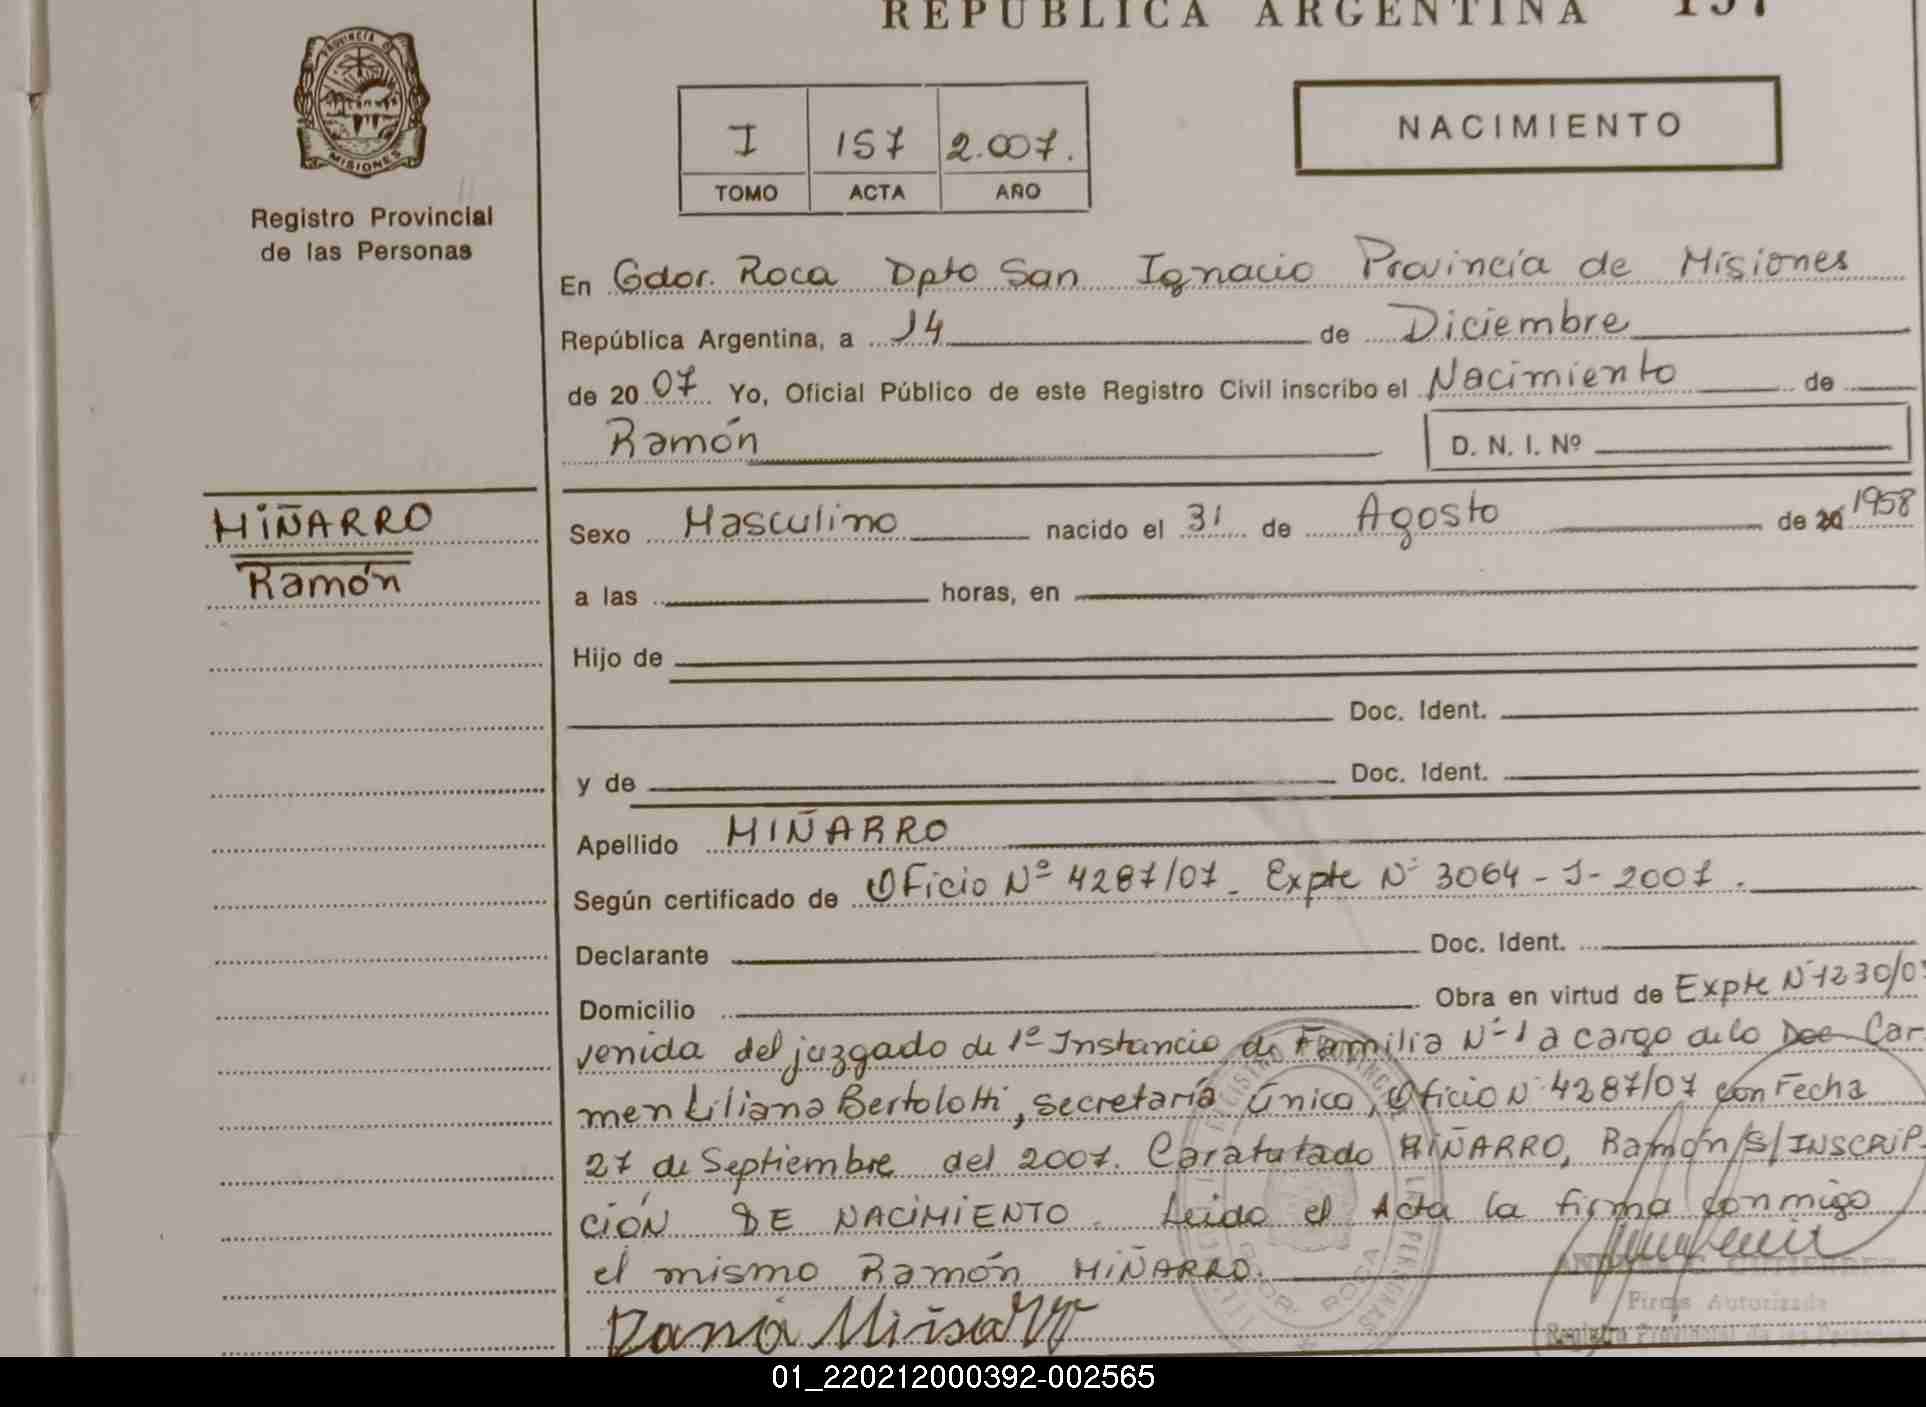 REPUBLICA ARGENTINA 157
PROVINCIA DE
MISIONES
Registro Provincial
de las Personas
I 157 2.007.
TOMO ACTA AÑO
NACIMIENTO
En Gdor. Roca Dpto San Ignacio Provincia de Misiones
República Argentina, a 14 de Diciembre
de 2007 Yo, Oficial Público de este Registro Civil inscribo el Nacimiento de
Ramón D. N. I. Nº
MIÑARRO
Ramón
Sexo Masculino nacido el 31 de Agosto de 20 1958
a las horas, en
Hijo de
Doc. Ident.
y de Doc. Ident.
Apellido MIÑARRO
Según certificado de Oficio Nº 4287/07. Expte Nº 3064-J-2007.
Declarante Doc. Ident.
Domicilio Obra en virtud de Expte Nº 1230/0
venida del juzgado de 1º Instancia de Familia Nº 1 a cargo de la Doc Car-
men Liliana Bertolotti, secretaría única, Oficio Nº 4287/07 con Fecha
27 de Septiembre del 2007. Caratutado MIÑARRO, Ramón S/INSCRIP-
CIÓN DE NACIMIENTO. Leido el Acta la firma conmigo
el mismo Ramón MIÑARRO.
Firma Autorizada
Registro Provincial de las Personas
GDOR. ROCA
01_220212000392-002565